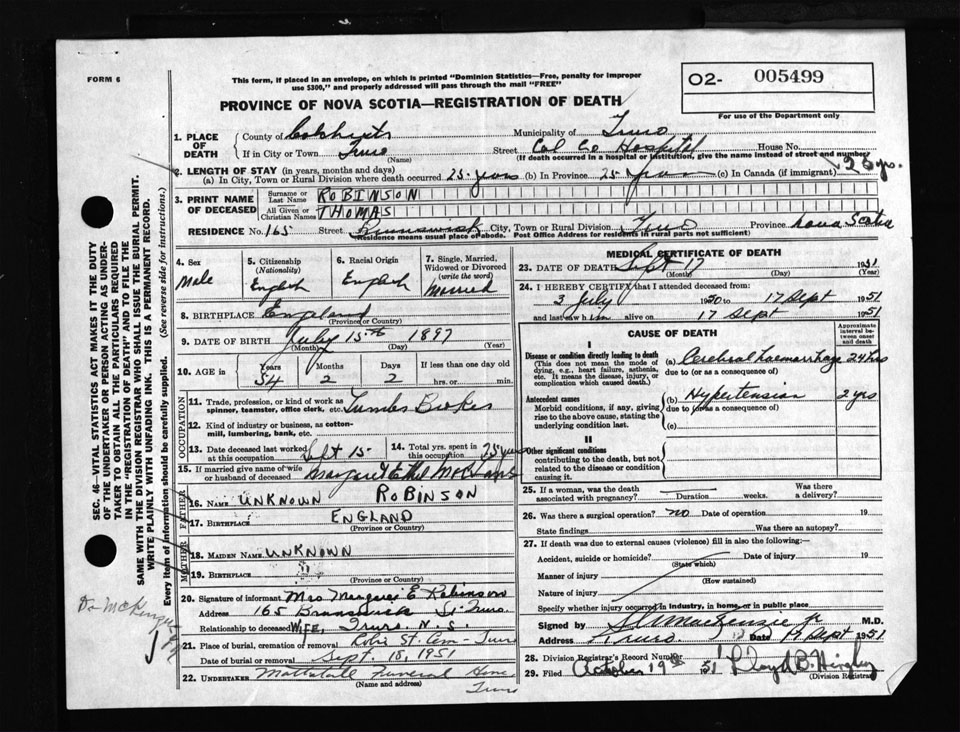 FORM 6
This form, if placed in an envelope, on which is printed "Dominion Statistics—Free, penalty for improper
use $300," and properly addressed will pass through the mail "FREE"
O2- 005499
For use of the Department only
PROVINCE OF NOVA SCOTIA—REGISTRATION OF DEATH
SEC. 46—VITAL STATISTICS ACT MAKES IT THE DUTY
OF THE UNDERTAKER OR PERSON ACTING AS UNDER-
TAKER TO OBTAIN ALL THE PARTICULARS REQUIRED
IN THE "REGISTRATION OF DEATH" AND TO FILE THE
SAME WITH THE DIVISION REGISTRAR WHO SHALL ISSUE THE BURIAL PERMIT.
WRITE PLAINLY WITH UNFADING INK. THIS IS A PERMANENT RECORD.
Every item of information should be carefully supplied. (See reverse side for instructions.)
1. PLACE OF DEATH
County of Colchester Municipality of Truro
If in City or Town Truro Street Col Co Hospital House No.
(Name) (If death occurred in a hospital or institution, give the name instead of street and number)
2. LENGTH OF STAY (in years, months and days)
(a) In City, Town or Rural Division where death occurred 25 years (b) In Province 25 years (c) In Canada (if immigrant) 26 yrs.
3. PRINT NAME OF DECEASED
Surname or Last Name ROBINSON
All Given or Christian Names THOMAS
RESIDENCE No. 165 Street Brunswick City, Town or Rural Division Truro Province Nova Scotia
Residence means usual place of abode. Post Office Address for residents in rural parts not sufficient)
4. Sex Male
5. Citizenship (Nationality) English
6. Racial Origin English
7. Single, Married, Widowed or Divorced (write the word) Married
8. BIRTHPLACE England
(Province or Country)
9. DATE OF BIRTH July 15th 1897
(Month) (Day) (Year)
10. AGE in Years 54 Months 2 Days 2 If less than one day old hrs. or min.
OCCUPATION
11. Trade, profession, or kind of work as spinner, teamster, office clerk, etc.
12. Kind of industry or business, as cotton-mill, lumbering, bank, etc.
13. Date deceased last worked at this occupation Sept 15
14. Total yrs. spent in this occupation 25 years
15. If married give name of wife or husband of deceased Margaret Ethel
FATHER
16. NAME UNKNOWN ROBINSON
17. BIRTHPLACE ENGLAND
(Province or Country)
MOTHER
18. MAIDEN NAME UNKNOWN
19. BIRTHPLACE
(Province or Country)
20. Signature of informant Mrs Margaret E Robinson
Address 165 Brunswick St. Truro
Relationship to deceased WIFE, Truro, N.S.
21. Place of burial, cremation or removal Robie St. Cem- Truro
Date of burial or removal Sept. 18, 1951
22. UNDERTAKER Mattatall Funeral Home
(Name and address) Truro
MEDICAL CERTIFICATE OF DEATH
23. DATE OF DEATH Sept 17 1951
(Month) (Day) (Year)
24. I HEREBY CERTIFY that I attended deceased from:
3 July 1950 to 17 Sept 1951
and last saw him alive on 17 Sept 1951
CAUSE OF DEATH
Approximate interval between onset and death
I
Disease or condition directly leading to death
(This does not mean the mode of dying, e.g., heart failure, asthenia, etc. It means the disease, injury, or complication which caused death.)
(a) Cerebral haemorrhage 24 hrs
due to (or as a consequence of)
Antecedent causes
Morbid conditions, if any, giving rise to the above cause, stating the underlying condition last.
(b) Hypertension 2 yrs
due to (or as a consequence of)
(c)
II
Other significant conditions
contributing to the death, but not related to the disease or condition causing it.
25. If a woman, was the death associated with pregnancy? Duration weeks. Was there a delivery?
26. Was there a surgical operation? no Date of operation 19
State findings Was there an autopsy?
27. If death was due to external causes (violence) fill in also the following:—
Accident, suicide or homicide? Date of injury 19
(State which)
Manner of injury
(How sustained)
Nature of injury
Specify whether injury occurred in industry, in home, or in public place
Signed by MacKenzie jr M.D.
Address Truro. Date 19 Sept 1951
28. Division Registrar's Record Number
29. Filed October 19th 51 Lloyd B. Hingley
(Division Registrar)